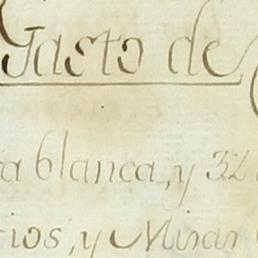 Gasto de
a blanca, y 32
ios, y Misas